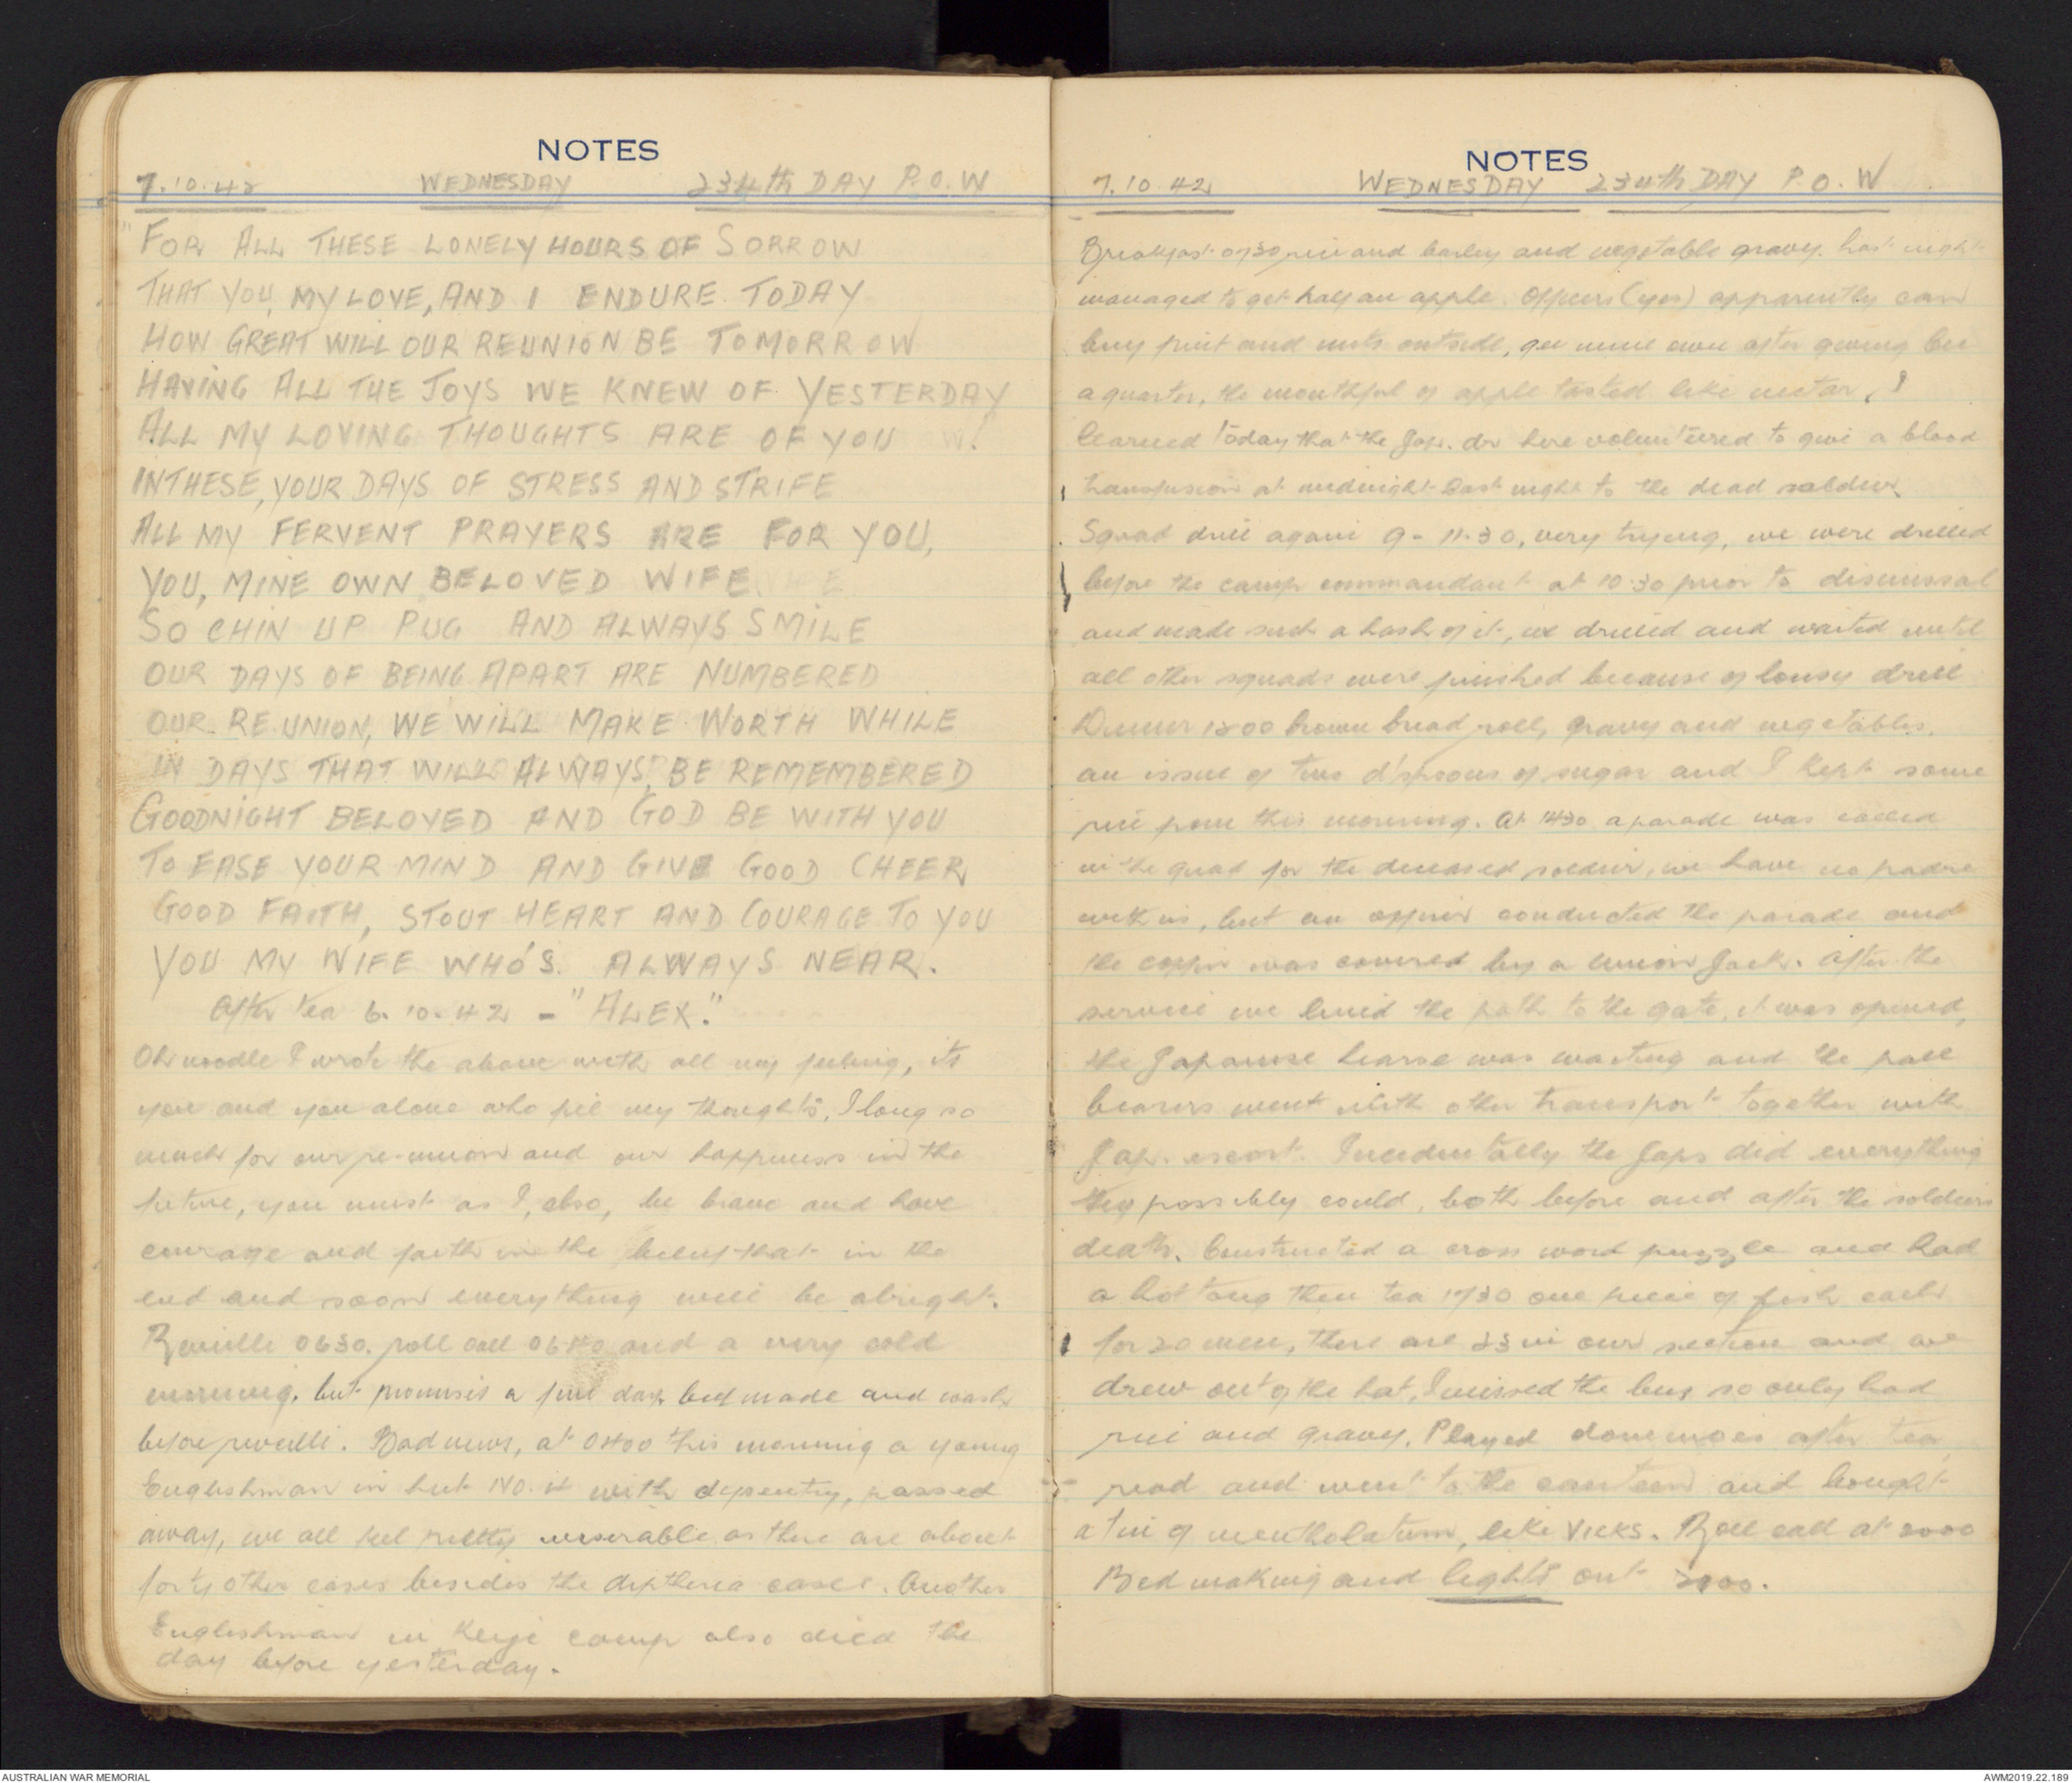 NOTES
7.10.42 WEDNESDAY 234th DAY P.O.W
"FOR ALL THESE LONELY HOURS OF SORROW
THAT YOU, MY LOVE, AND I ENDURE TODAY
HOW GREAT WILL OUR REUNION BE TOMORROW
HAVING ALL THE JOYS WE KNEW OF YESTERDAY
ALL MY LOVING THOUGHTS ARE OF YOU
IN THESE, YOUR DAYS OF STRESS AND STRIFE
ALL MY FERVENT PRAYERS ARE FOR YOU,
YOU, MINE OWN BELOVED WIFE
SO CHIN UP PUG AND ALWAYS SMILE
OUR DAYS OF BEING APART ARE NUMBERED
OUR RE.UNION, WE WILL MAKE WORTH WHILE
IN DAYS THAT WILL ALWAYS BE REMEMBERED
GOODNIGHT BELOVED AND GOD BE WITH YOU
TO EASE YOUR MIND AND GIVE GOOD CHEER
GOOD FAITH, STOUT HEART AND COURAGE TO YOU
YOU MY WIFE WHO'S ALWAYS NEAR.
After tea 6.10.42 - "ALEX."
Oh noodle I wrote the above with all my feeling, its
you and you alone who fill my thoughts, I long so
much for our re-union and our happiness in the
future, you must as I, also, be brave and have
courage and faith in the belief that in the
end and soon everything will be alright.
Reveille 0630. roll call 0640 and a very cold
morning, but promises a fine day. bed made and wash
before reveille. Bad news, at 0400 this morning a young
Englishman in hut No. 4 with dysentry, passed
away, we all feel pretty miserable as there are about
forty other cases besides the diptheria cases. Another
Englishman in Keijo camp also died the
day before yesterday.
NOTES
7.10.42 WEDNESDAY 234th DAY P.O.W
Breakfast 0730 rice and barley and vegetable gravy. Last night
managed to get half an apple. Officers (yes) apparently can
buy fruit and nuts outside, gee mine own after giving
a quarter, the mouthful of apple tasted like nectar, I
learned today that the Jap. dr here volunteered to give a blood
transfusion at midnight last night to the dead soldier
Squad drill again 9 - 11.30, very trying, we were drilled
before the camp commandant at 10.30 prior to dismissal
and made such a hash of it, we drilled and waited until
all other squads were finished because of lousy drill
Dinner 1300 brown bread roll, gravy and vegetables.
an issue of two d'spoons of sugar and I kept some
rice from this morning. At 1430 a parade was called
in the quad for the deceased soldier, we have no padre
with us, but an officer conducted the parade and
the coffin was covered by a Union Jack. After the
service we lined the path to the gate, it was opened,
the Japanese hearse was waiting and the pall
bearers went with other transport together with
Jap. escort. Incidentally the Japs did everything
they possibly could, both before and after the soldiers
death. Constructed a cross word puzzle and had
a hot tong then tea 1730 one piece of fish each
for 20 men, there are 23 in our section and we
drew out of the hat, I missed the bus so only had
rice and gravy. Played dominoes after tea,
read and went to the canteen and bought
a tin of mentholatum, like VICKS. Roll call at 2000
Bed making and lights out 2100.
AUSTRALIAN WAR MEMORIAL
AWM2019.22.189